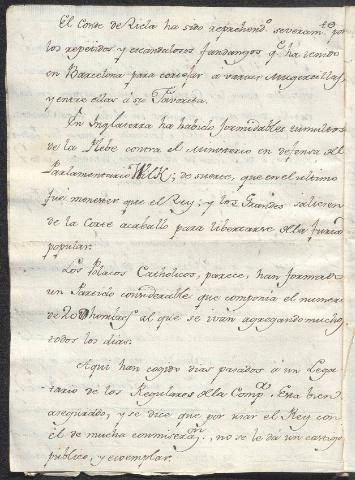 40
El Conde de Ricla ha sido reprehendo. severam.te por
los repetidos y escandalosos fandangos q.e ha tenido
en Barcelona para cortejar a varias Mugercillas
y entre ellas á su Favorita.
En Inglaterra ha habido formidables tumultos
de la Plebe contra el Ministerio en defensa del
Parlamentario Wilk; de suerte, que en el ultimo
fue menester que el Rey, y los Grandes saliesen
de la Corte acaballo para libertarse de la furia
popular.
Los Polacos Catholicos, parece, han formado
un Partido considerable que componia el numero
de 20 hombres al que se ivan agregando muchos
todos los dias.
Aqui han cogido dias pasados á un Lega
tario de los Regulares de la Comp.a Esta bien
asegurado, y se dice que por usar el Rey con
él de mucha conmiseraon., no se le da un castigo
publico, y exemplar.